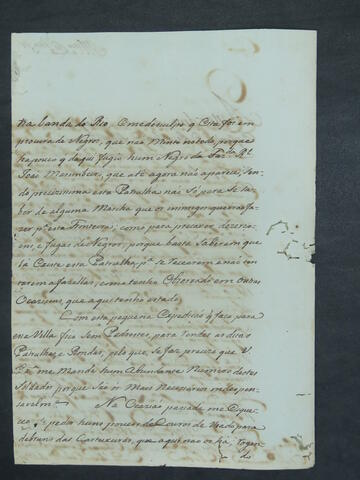 tra banda do Rio, e me desculpo q Cita foi em
procura de Negros, que nao Minto notado, porque
ha pouco q daqui fugio hum Negro da Faz.da R.l
Joze Marimbeca, que até agora não apareceu, sen-
do precizissima esta Patrulha não Só para Se Sa-
ber de alguma Marcha que os inimigos queirão fa-
zer p.a esta Fronteira, como para precaver dezerço-
ens, e fugas de Negros, porque basta Saberem que
lá Exzite esta Patrulha, p.a Se recearem e não ten-
tarem a fazellas, como tenho Observado em outras
Ocazioens que aqui tenho estado.
Com esta pequena Expedição q faço para
essa Villa fica Sem Pedestres, para rondas as duas
Patrulhas e Rondas, pelo que Se faz precizo que V.
Ex.a me Mande hum Abundante Numero destes
Soldados porque São os Mais Necessarios e indespen-
saveis
Na Ocazião passada me Esque-
ceo pedir huns poucos de Couros de Viado para
debruns das Cartuxeiras, que aqui não os há, togen-
do